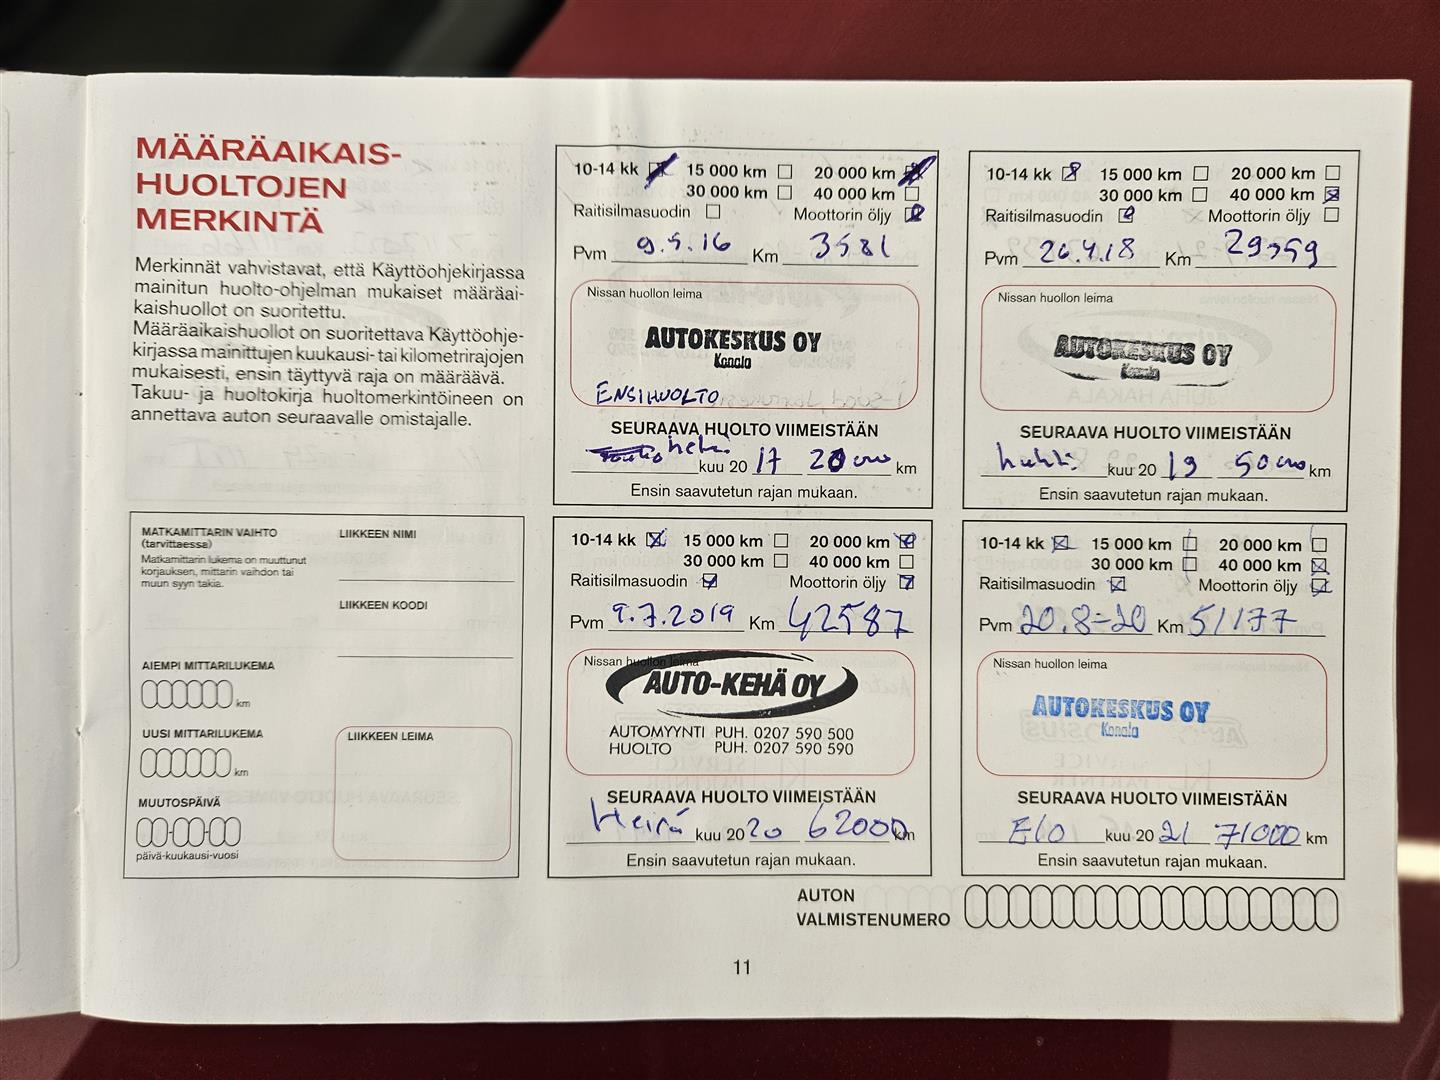 MÄÄRÄAIKAIS-
HUOLTOJEN
MERKINTÄ
Merkinnät vahvistavat, että Käyttöohjekirjassa
mainitun huolto-ohjelman mukaiset määräai-
kaishuollot on suoritettu.
Määräaikaishuollot on suoritettava Käyttöohje-
kirjassa mainittujen kuukausi- tai kilometrirajojen
mukaisesti, ensin täyttyvä raja on määräävä.
Takuu- ja huoltokirja huoltomerkintöineen on
annettava auton seuraavalle omistajalle.
MATKAMITTARIN VAIHTO
(tarvittaessa)
Matkamittarin lukema on muuttunut
korjauksen, mittarin vaihdon tai
muun syyn takia.
LIIKKEEN NIMI
LIIKKEEN KOODI
AIEMPI MITTARILUKEMA
km
UUSI MITTARILUKEMA
km
LIIKKEEN LEIMA
MUUTOSPÄIVÄ
päivä-kuukausi-vuosi
10-14 kk 15 000 km 20 000 km
30 000 km 40 000 km
Raitisilmasuodin Moottorin öljy
Pvm 9.5.16 Km 3581
Nissan huollon leima
AUTOKESKUS OY
Konala
ENSIHUOLTO
SEURAAVA HUOLTO VIIMEISTÄÄN
kuu 20 17 20000 km
Ensin saavutetun rajan mukaan.
10-14 kk 15 000 km 20 000 km
30 000 km 40 000 km
Raitisilmasuodin Moottorin öljy
Pvm 26.4.18 Km 29759
Nissan huollon leima
AUTOKESKUS OY
Konala
SEURAAVA HUOLTO VIIMEISTÄÄN
huhti kuu 20 19 50000 km
Ensin saavutetun rajan mukaan.
10-14 kk 15 000 km 20 000 km
30 000 km 40 000 km
Raitisilmasuodin Moottorin öljy
Pvm 9.7.2019 Km 42587
Nissan huollon leima
AUTO-KEHÄ OY
AUTOMYYNTI PUH. 0207 590 500
HUOLTO PUH. 0207 590 590
SEURAAVA HUOLTO VIIMEISTÄÄN
Heinä kuu 2020 62000 km
Ensin saavutetun rajan mukaan.
10-14 kk 15 000 km 20 000 km
30 000 km 40 000 km
Raitisilmasuodin Moottorin öljy
Pvm 20.8-20 Km 51177
Nissan huollon leima
AUTOKESKUS OY
Konala
SEURAAVA HUOLTO VIIMEISTÄÄN
Elo kuu 20 21 71000 km
Ensin saavutetun rajan mukaan.
AUTON
VALMISTENUMERO
11